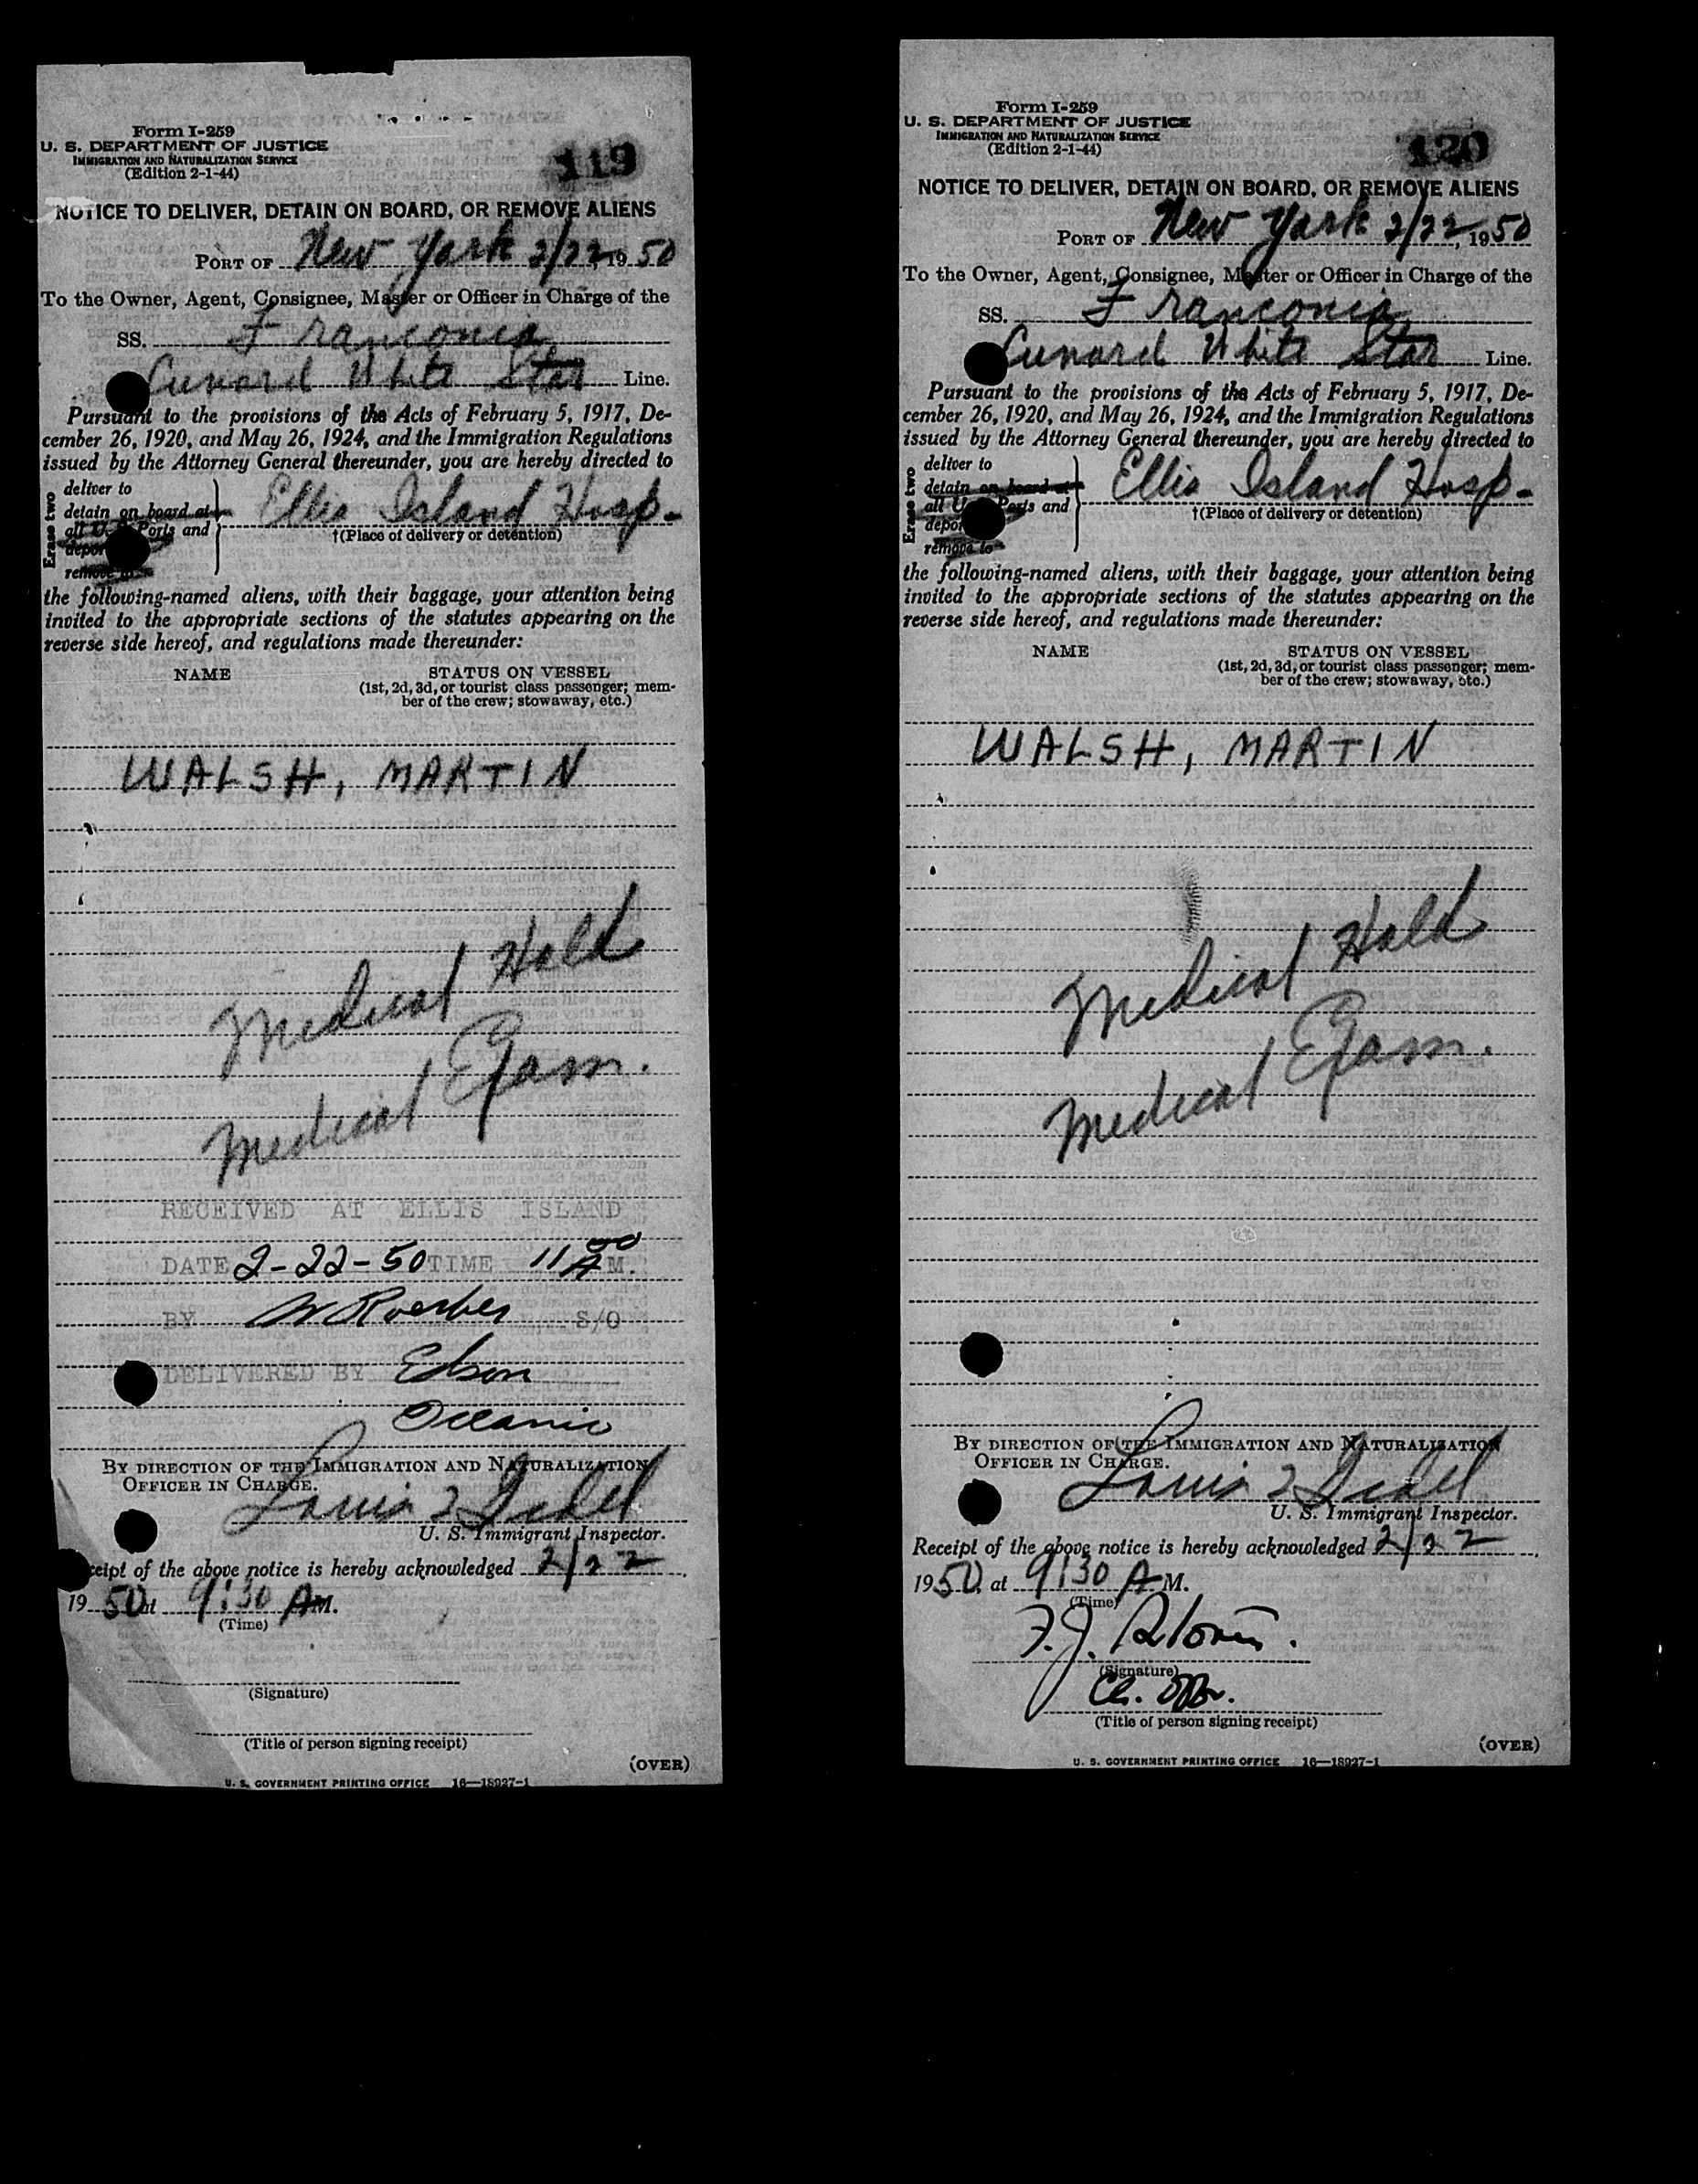 Form I-259
U. S. DEPARTMENT OF JUSTICE
IMMIGRATION AND NATURALIZATION SERVICE
(Edition 2-1-44)
119
NOTICE TO DELIVER, DETAIN ON BOARD, OR REMOVE ALIENS
PORT OF New York 2/22, 1950
To the Owner, Agent, Consignee, Master or Officer in Charge of the
SS. Franconia
Cunard White Star Line.
Pursuant to the provisions of the Acts of February 5, 1917, De-
cember 26, 1920, and May 26, 1924, and the Immigration Regulations
issued by the Attorney General thereunder, you are hereby directed to
Erase two
deliver to
detain on board at
all U. Ports and
depor
remove to
Ellis Island Hosp.
†(Place of delivery or detention)
the following-named aliens, with their baggage, your attention being
invited to the appropriate sections of the statutes appearing on the
reverse side hereof, and regulations made thereunder:
NAME STATUS ON VESSEL
(1st, 2d, 3d, or tourist class passenger; mem-
ber of the crew; stowaway, etc.)
WALSH, MARTIN
Medical Hold
Medical Exam.
RECEIVED AT ELLIS ISLAND
DATE 2-22-50 TIME 11 00 A M.
BY S/O
DELIVERED BY Edson
Oceanic
BY DIRECTION OF THE IMMIGRATION AND NATURALIZATION
OFFICER IN CHARGE.
Louis
U. S. Immigrant Inspector.
ceipt of the above notice is hereby acknowledged 2/22,
1950 at 9:30 A M.
(Time)
(Signature)
(Title of person signing receipt)
(OVER)
U. S. GOVERNMENT PRINTING OFFICE 16—18927-1
Form I-259
U. S. DEPARTMENT OF JUSTICE
IMMIGRATION AND NATURALIZATION SERVICE
(Edition 2-1-44)
120
NOTICE TO DELIVER, DETAIN ON BOARD, OR REMOVE ALIENS
PORT OF New York 2/22, 1950
To the Owner, Agent, Consignee, Master or Officer in Charge of the
SS. Franconia
Cunard White Star Line.
Pursuant to the provisions of the Acts of February 5, 1917, De-
cember 26, 1920, and May 26, 1924, and the Immigration Regulations
issued by the Attorney General thereunder, you are hereby directed to
Erase two
deliver to
detain on board at
all U Ports and
depor
remove to
Ellis Island Hosp.
†(Place of delivery or detention)
the following-named aliens, with their baggage, your attention being
invited to the appropriate sections of the statutes appearing on the
reverse side hereof, and regulations made thereunder:
NAME STATUS ON VESSEL
(1st, 2d, 3d, or tourist class passenger; mem-
ber of the crew; stowaway, etc.)
WALSH, MARTIN
Medical Hold
Medical Exam.
BY DIRECTION OF THE IMMIGRATION AND NATURALIZATION
OFFICER IN CHARGE.
Louis
U. S. Immigrant Inspector.
Receipt of the above notice is hereby acknowledged 2/22,
1950, at 9:30 A M.
(Time)
F. J.
(Signature)
Ch. Offr.
(Title of person signing receipt)
(OVER)
U. S. GOVERNMENT PRINTING OFFICE 16—18927-1